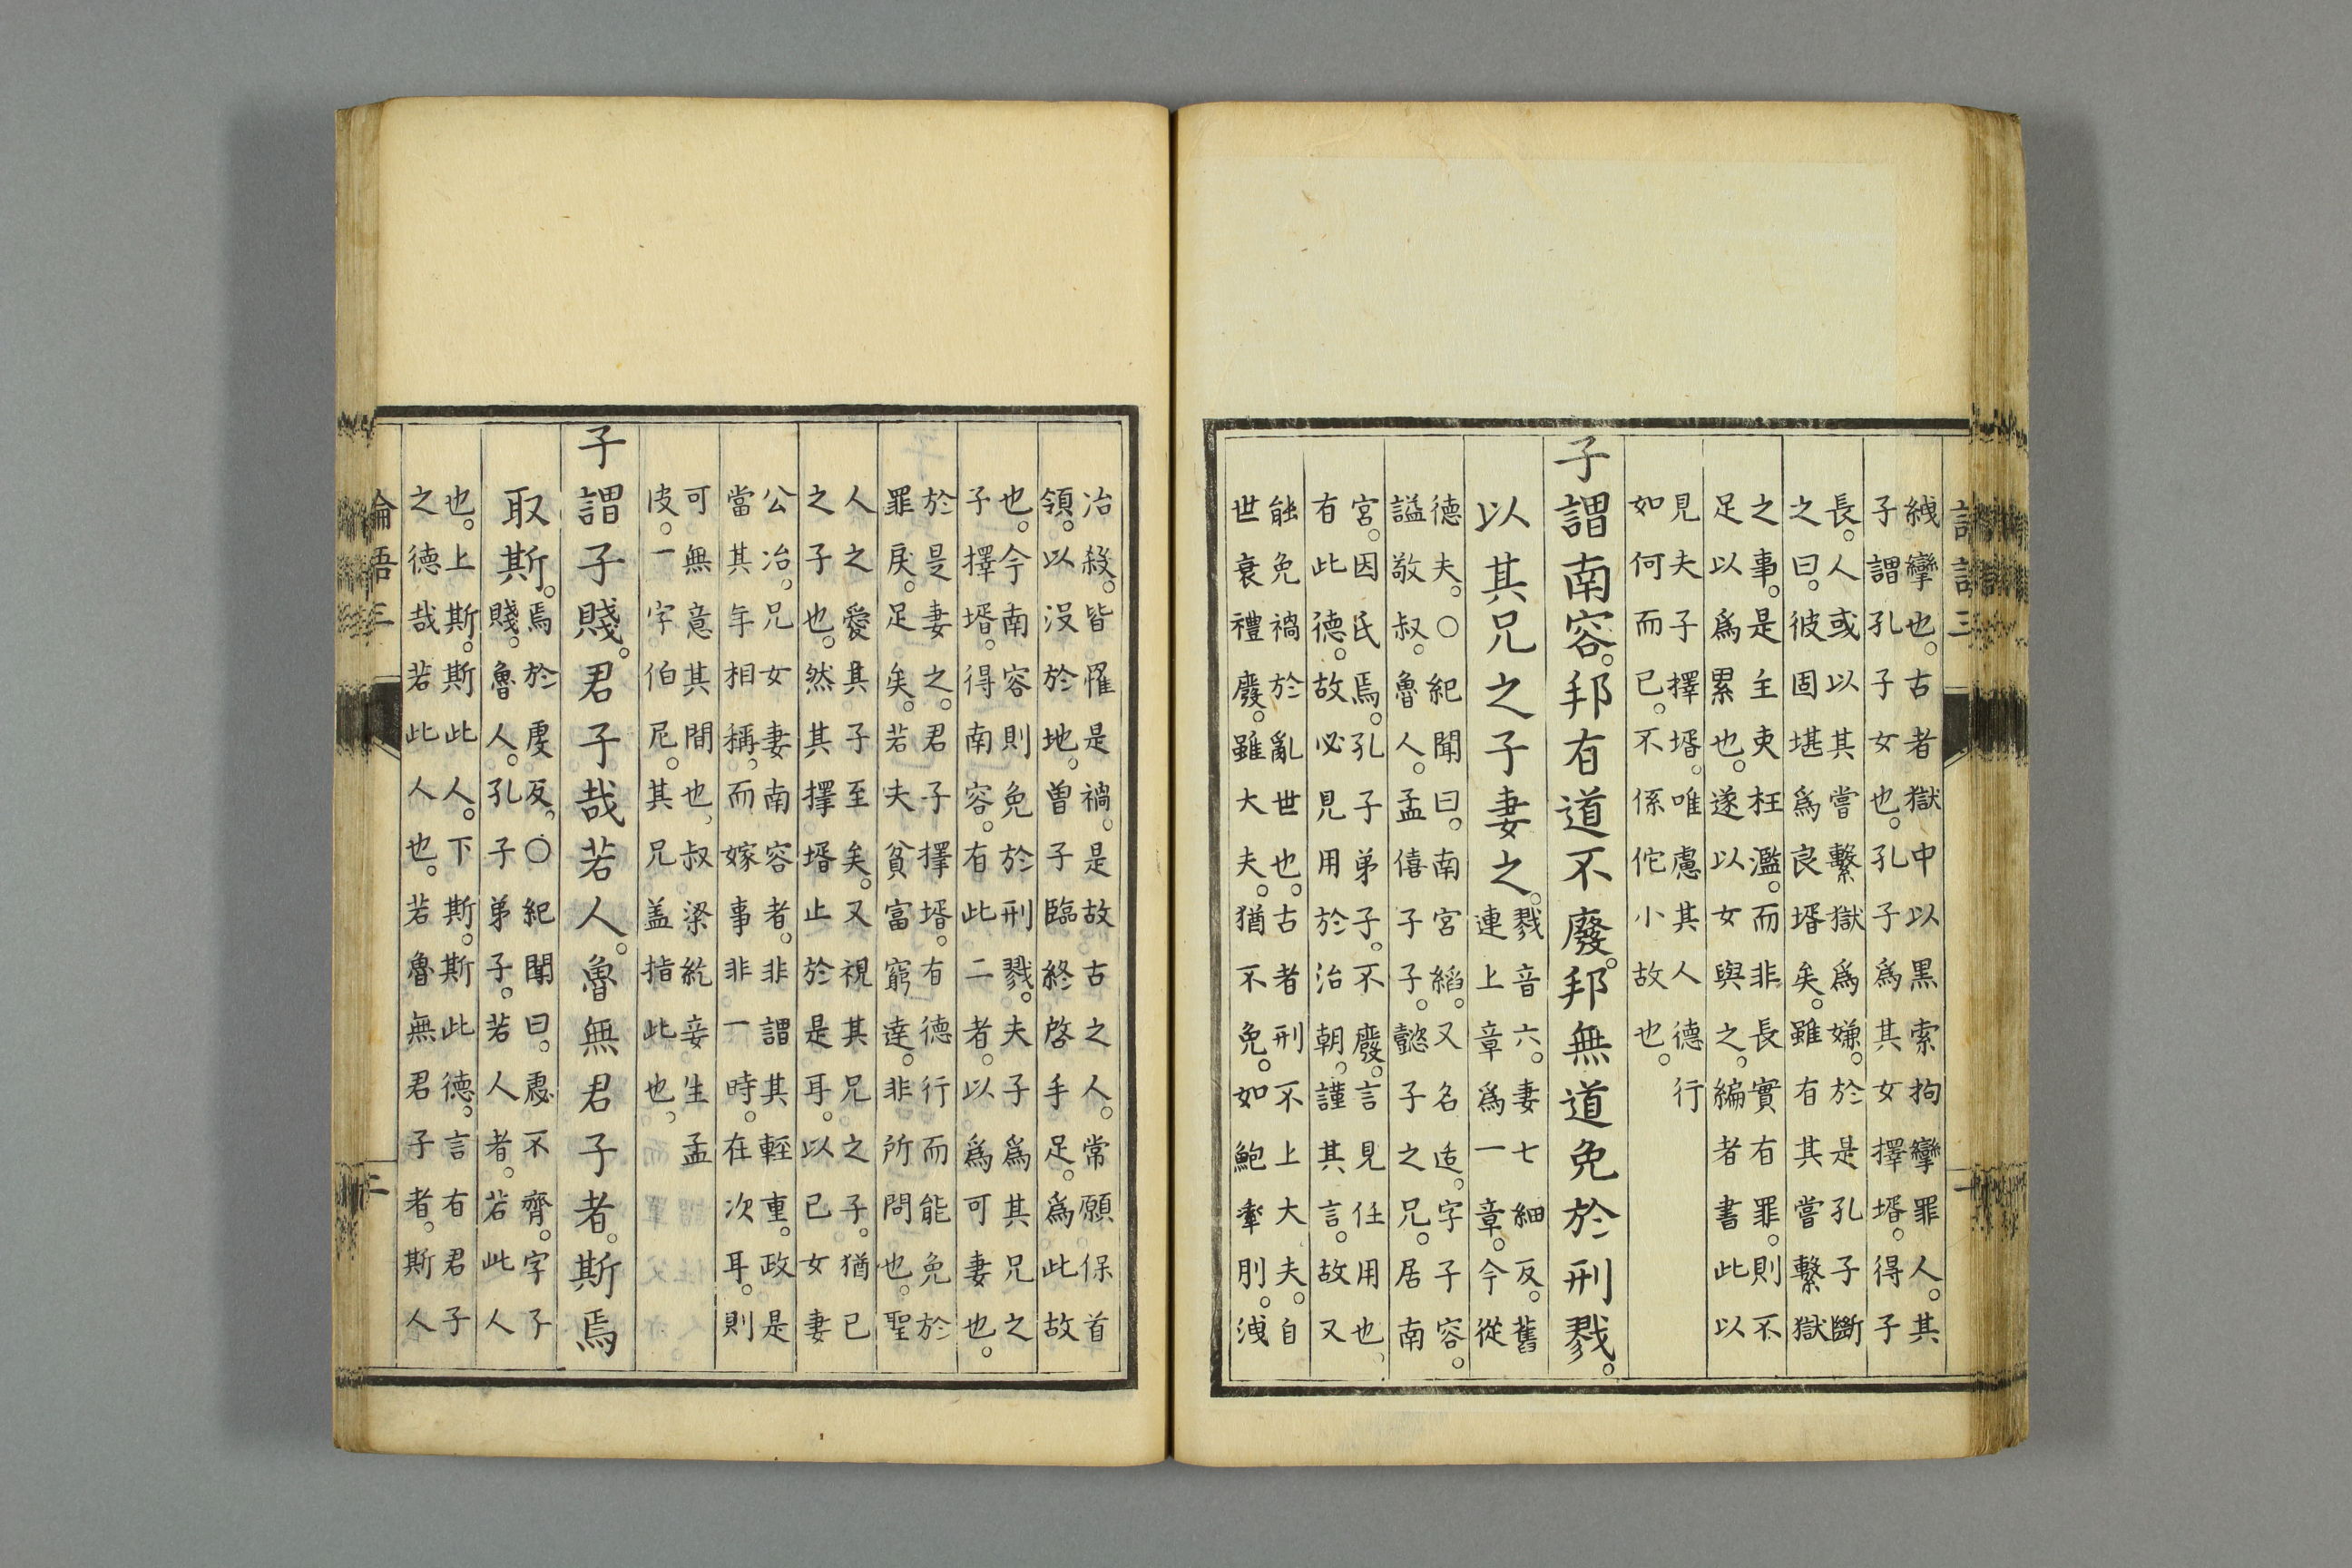 絏攣也。古者獄中以黒索拘攣罪人。其
子謂孔子女也。孔子爲其女擇壻。得子
長。人或以其嘗繋獄爲嫌。於是孔子斷
之曰。彼固堪爲良壻矣。雖有其嘗繋獄
之事。是主吏枉濫。而非長實有罪。則不
足以爲累也。遂以女與之。編者書此以
見夫子擇壻。唯慮其人德行
如何而已。不係佗小故也。
子謂南容。邦有道不廢。邦無道免於刑戮。
以其兄之子妻之。
戮音六。妻七細反。舊
連上章爲一章。今從
德夫。○紀聞曰。南宮縚。又名适。字子容。
謚敬叔。魯人。孟僖子子。懿子之兄。居南
宮。因氏焉。孔子弟子。不廢。言見任用也、
有此德。故必見用於治朝、謹其言。故又
能免禍於亂世也。古者刑不上大夫。自
世衰禮廢。雖大夫。猶不免。如鮑牽刖。洩
冶殺。皆罹是禍。是故古之人。常願保首
領。以沒於地。曽子臨終啓手足。爲此故
也。今南容則免於刑戮。夫子爲其兄之
子擇壻。得南容。有此二者。以爲可妻也。
於是妻之。君子擇壻。有德行而能免於
罪戾。足矣。若夫貧富窮達。非所問也。聖
人之愛其子至矣。又視其兄之子。猶己
之子也。然其擇壻止於是耳。以己女妻
公冶。兄女妻南容者。非謂其輕重。政是
當其年相稱。而嫁事非一時。在次耳。則
可無意其間也、叔梁紇妾生孟
皮。一字伯尼。其兄盖指此也、
子謂子賤。君子哉若人。魯無君子者。斯焉
取斯。
焉於虔反。○紀聞曰。宓不齊。字子
賤。魯人。孔子弟子。若人者。若此人
也。上斯。斯此人。下斯。斯此德。言有君子
之德哉若此人也。若魯無君子者。斯人
論語三
二